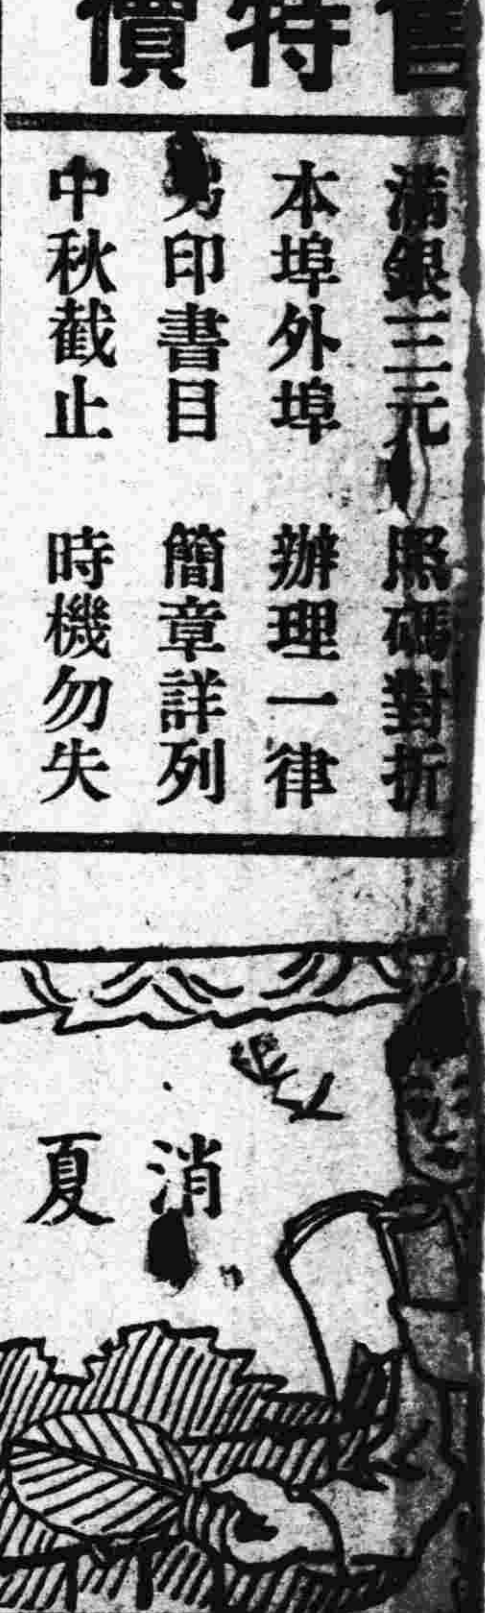 售特價
滿銀三元 照碼對折
本埠外埠 辦理一律
另印書目 簡章詳列
中秋截止 時機勿失
消夏